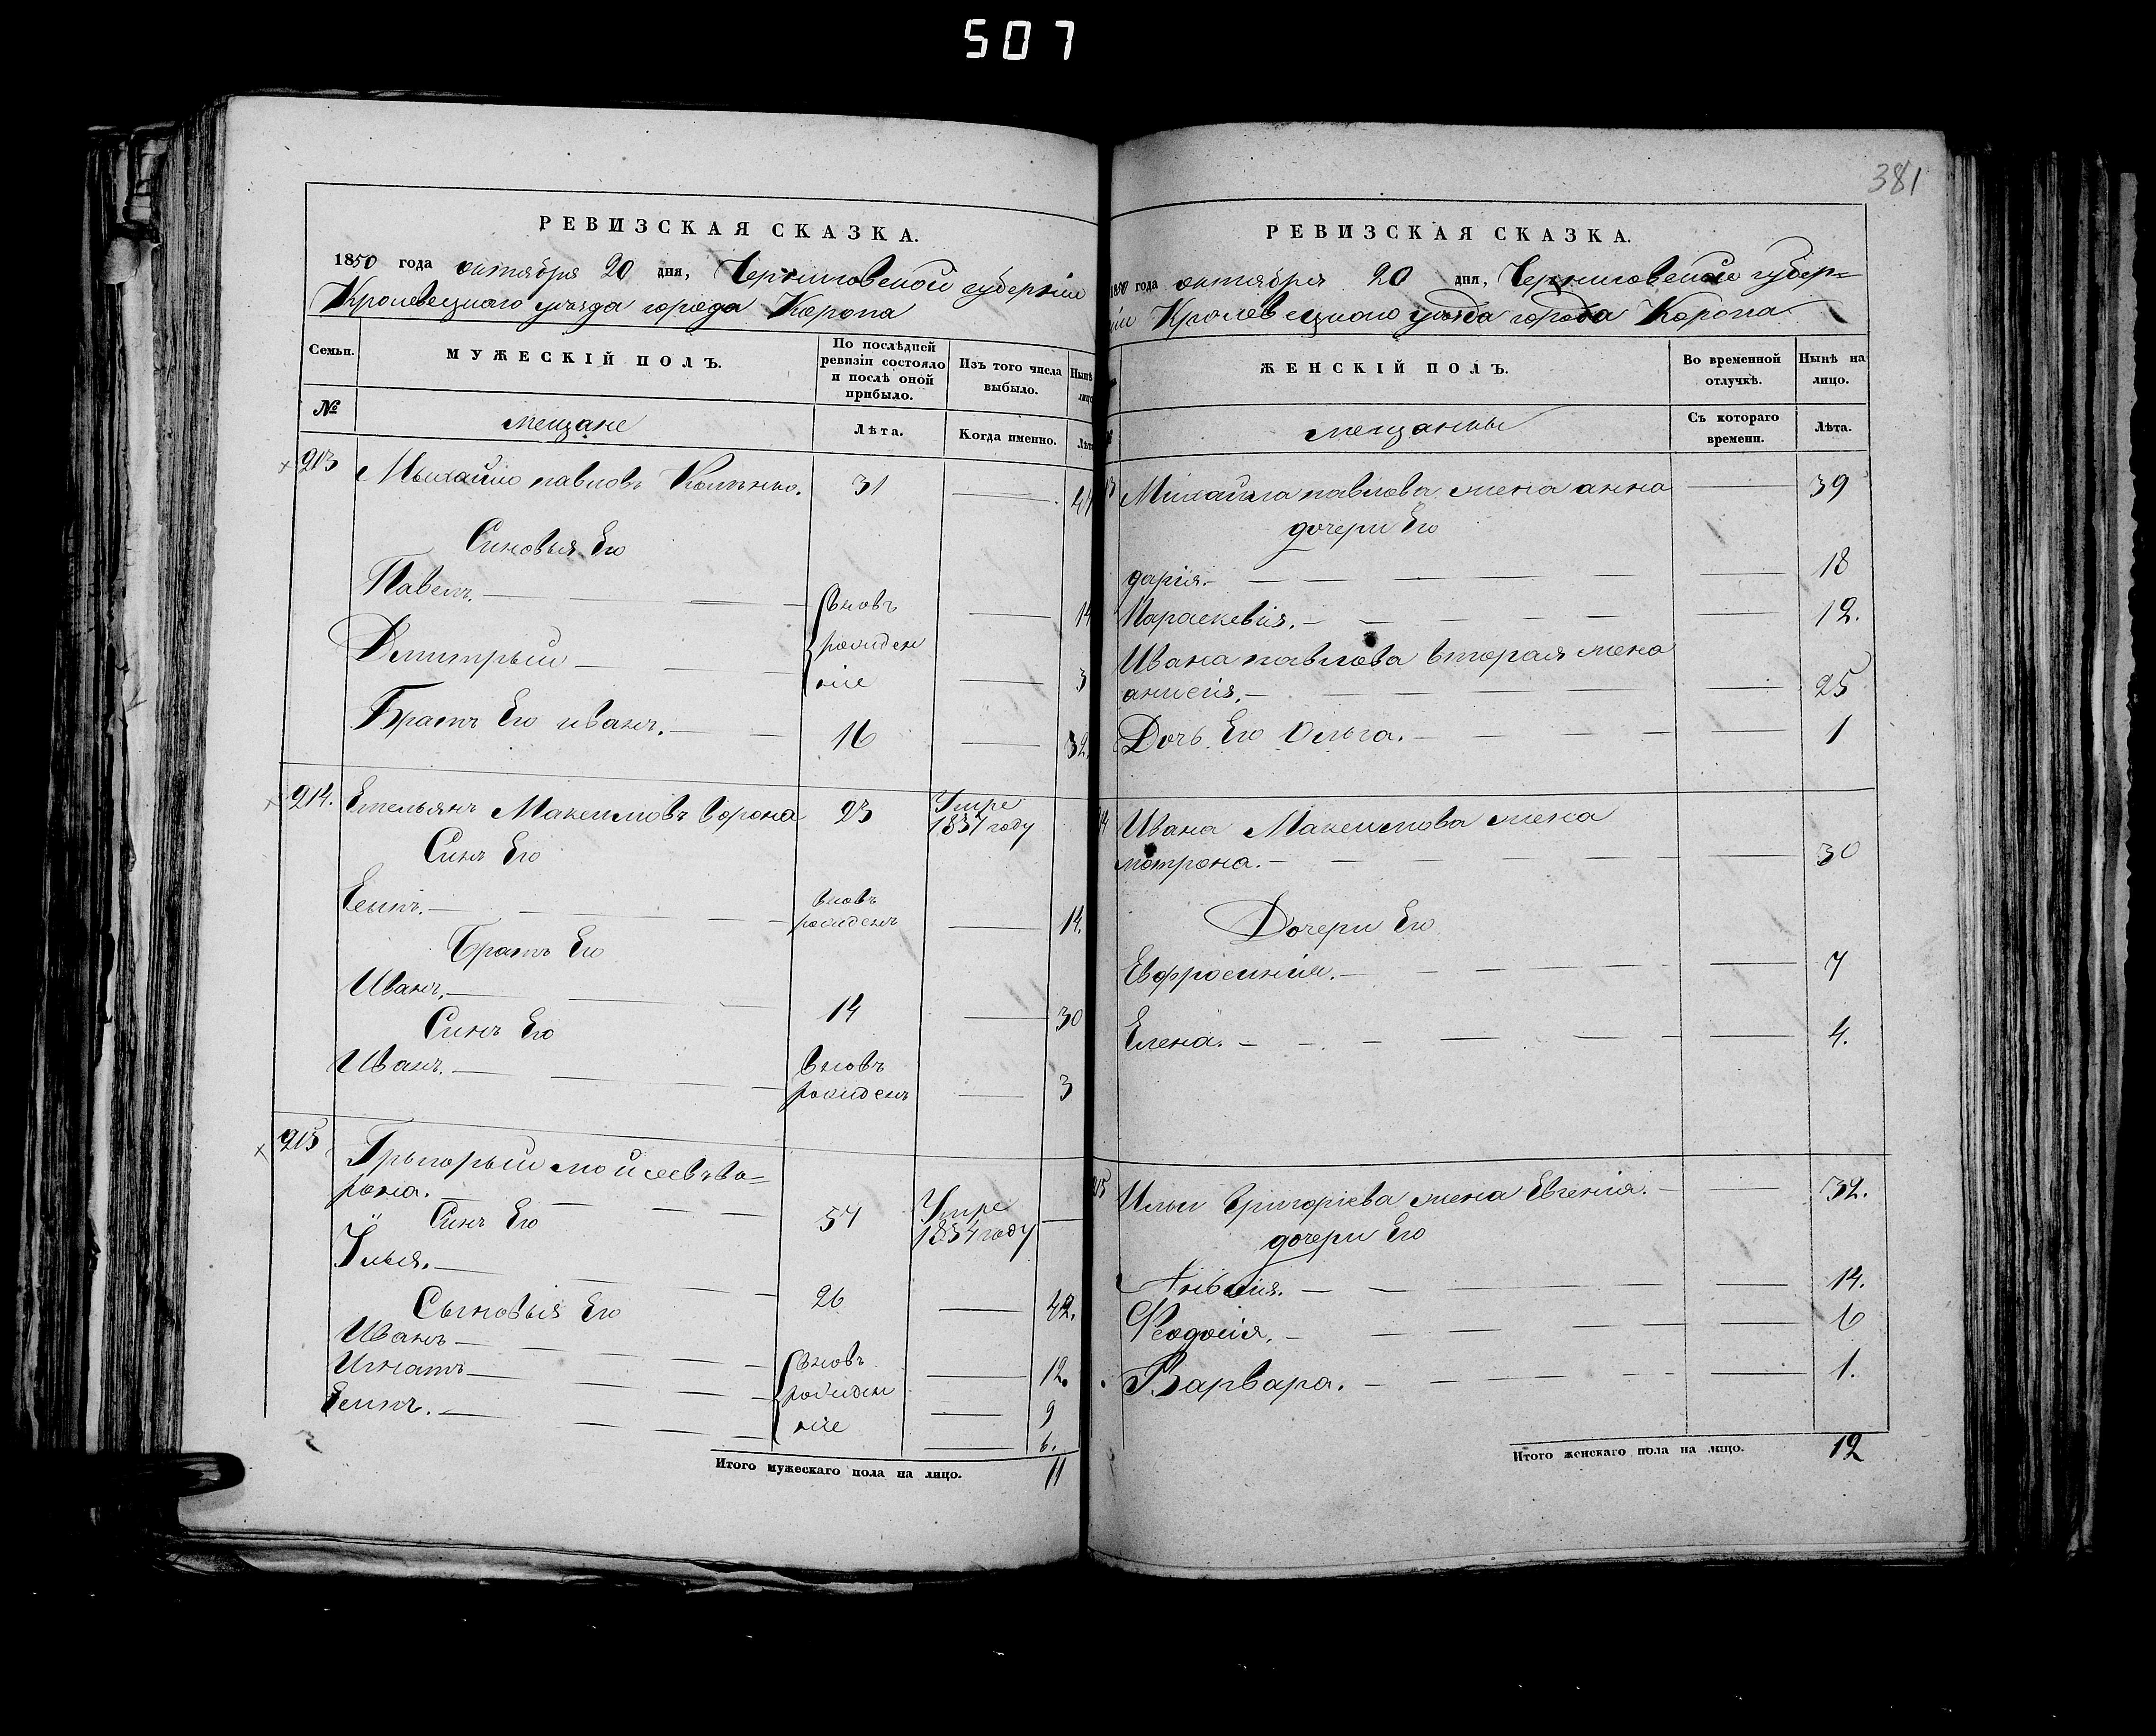 507
381
РЕВИЗСКАЯ СКАЗКА.
1850 года октября 20 дня, Черниговской губерніи
Кролевецкаго уѣзда города Коропа
Семьи.
МУЖЕСКІЙ ПОЛЪ.
По послѣдней ревизіи состояло и послѣ оной прибыло.
Изъ того числа выбыло.
Нынѣ лицо
№
мещане
Лѣта.
Когда именно.
Лѣт
213 Михайло павловъ 31 47
Синовья Его
Павелъ. вновь 14
Дмитрый рожден 3
ніе
Братъ Его иванъ. 16 32
214. Емельянъ Максимовъ ворона 23 Умре
1837 году
Синъ Его
Есипъ. вновь
рожденъ 14.
Братъ Его
Иванъ. 14 30
Синъ Его
Иванъ. вновь
рожденъ 3
215 Грыгорый мойсеевъ во=
рона. 57 Умре
1834 году
Синъ Его
Илья. 26 42.
Сыновья Его
Иванъ вновь 12.
Игнатъ рожден 9
Есипъ. ніе 6.
Итого мужескаго пола на лицо. 11
РЕВИЗСКАЯ СКАЗКА.
1850 года октября 20 дня, Черниговской губер=
ніи Кролевецкаго уѣзда города Коропа
ЖЕНСКІЙ ПОЛЪ.
Во временной отлучкѣ.
Нынѣ на лицо.
мещанки
Съ котораго времени.
Лѣта.
Михайла павлова жена анна 39
дочери Его
дарія. 18
Параскевія. 12.
Ивана павлова вторая жена
анисія. 25
Дочь Его Ольга. 1
14 Ивана Максимова жена
мотрона. 30
Дочери Его
Евфросинія. 7
Елена. 4.
215 Ильи Григоріева жена Евгенія. 32.
дочери Его
14.
Феодосія. 6
Варвара. 1.
Итого женскаго пола на лицо. 12